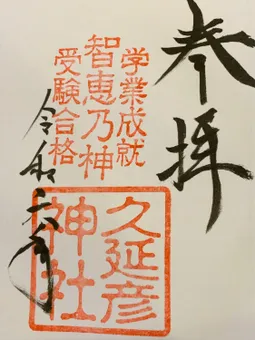 奉拝
学業成就
智恵乃神
受験合格
久延彦
神社
令和年